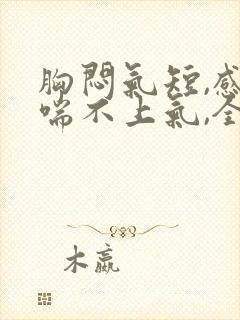 胸悶氣短,感
喘不上氣,全
木嬴